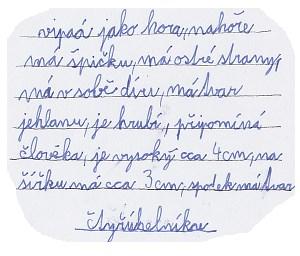 vypaá jako hora, nahoře
má špičku, má ostré strany,
má v sobě díru, má tvar
jehlanu, je hrubí, připomíná
člověka, je vysoký cca 4cm, na
šířku má cca 3cm, spodek má tvar
čtyřúhelníku